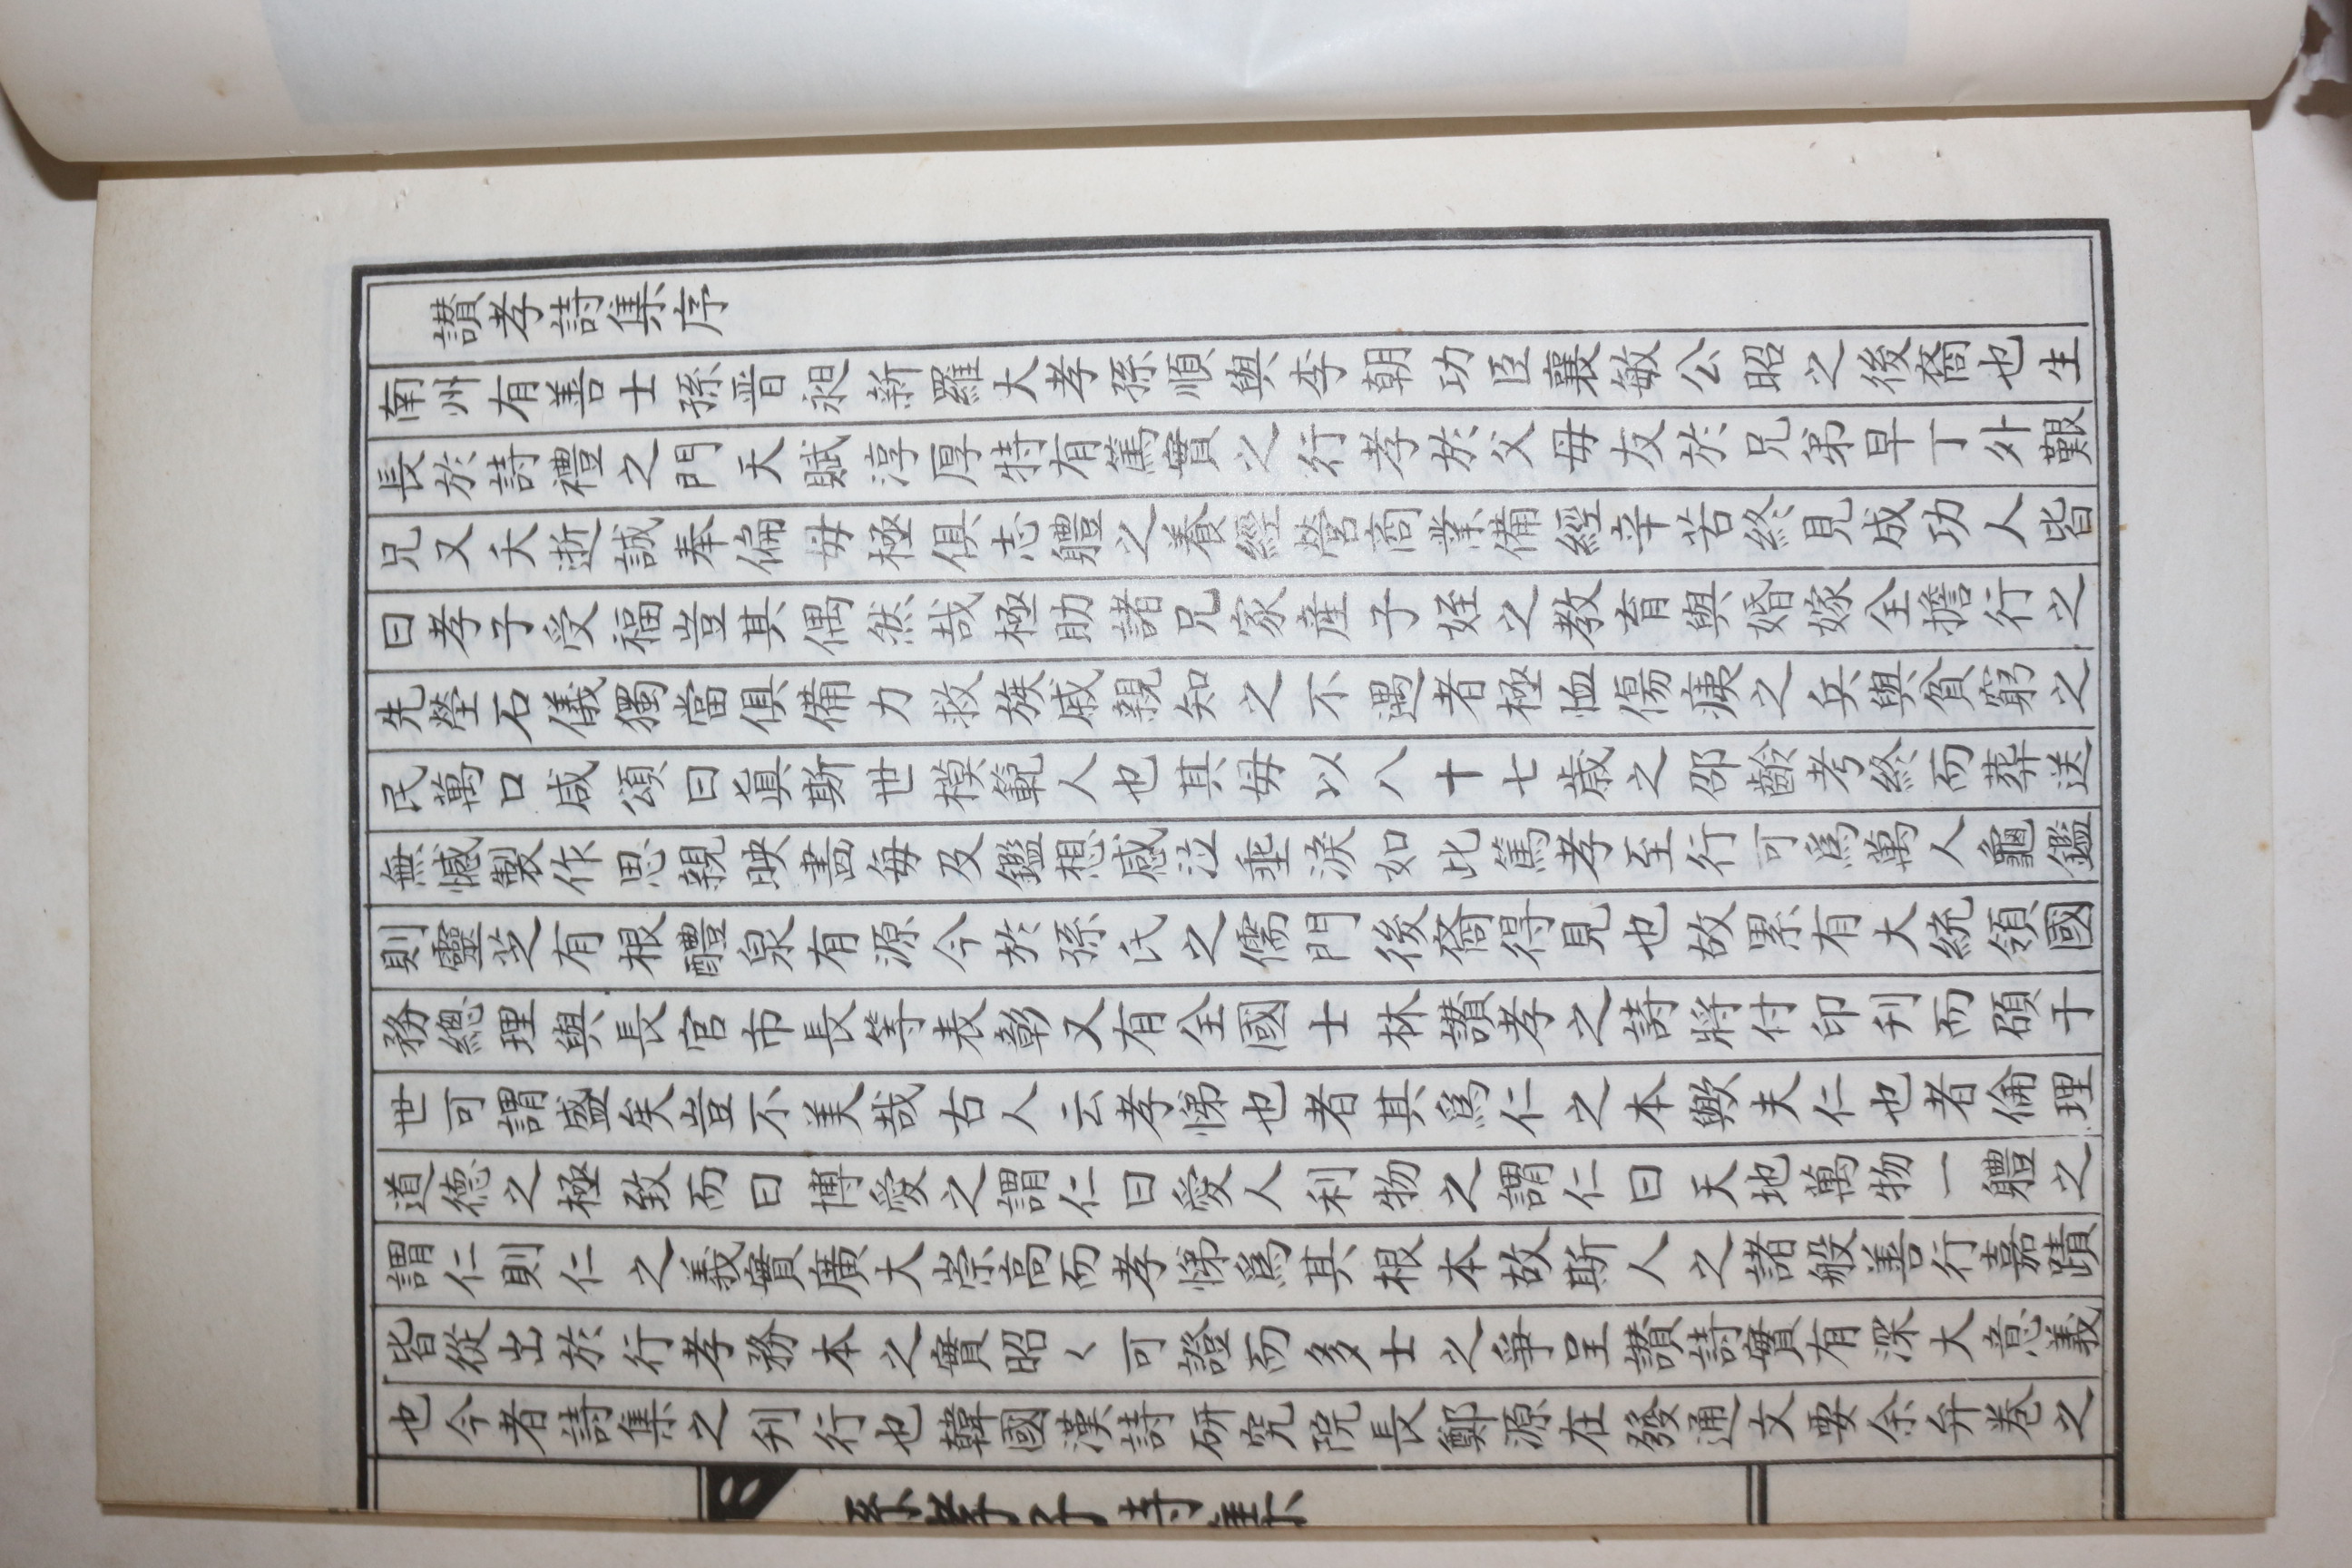 讃孝詩集序
南州有善士孫晋昶新羅大孝孫順與李朝功臣襄敏公昭之後裔也生
長於詩禮之門天賦淳厚特有篤實之行孝於父母友於兄弟早丁外艱
兄又夭逝誠奉偏母極俱志軆之養經營商業備經辛苦終見成功人皆
曰孝子受福豈其偶然哉極助諸兄家産子姪之教育與婚嫁全擔行之
先塋石儀獨當俱備力救族戚親知之不遇者極恤傷痍之兵與貧窮之
民萬口咸頌曰眞斯世模範人也其母以八十七歳之邵齡考終而葬送
無憾製作思親映畵每及鑑想感泣垂淚如此篤孝至行可爲萬人龜鑑
則靈芝有根醴泉有源今於孫氏之儒門後裔得見也故累有大統領國
務總理與長官市長等表彰又有全國士林讃孝之詩將付印刋而碩于
世可謂盛矣豈不美哉古人云孝悌也者其爲仁之本歟夫仁也者倫理
道德之極致而曰博愛之謂仁曰愛人利物之謂仁曰天地萬物一軆之
謂仁則仁之義實廣大崇高而孝悌爲其根本故斯人之諸般善行嘉蹟
皆從出於行孝務本之實昭〱可證而多士之爭呈讃詩實有深大意義
也今者詩集之刋行也韓國漢詩研究院長鄭源在發通文要余弁卷之
孫孝子詩集